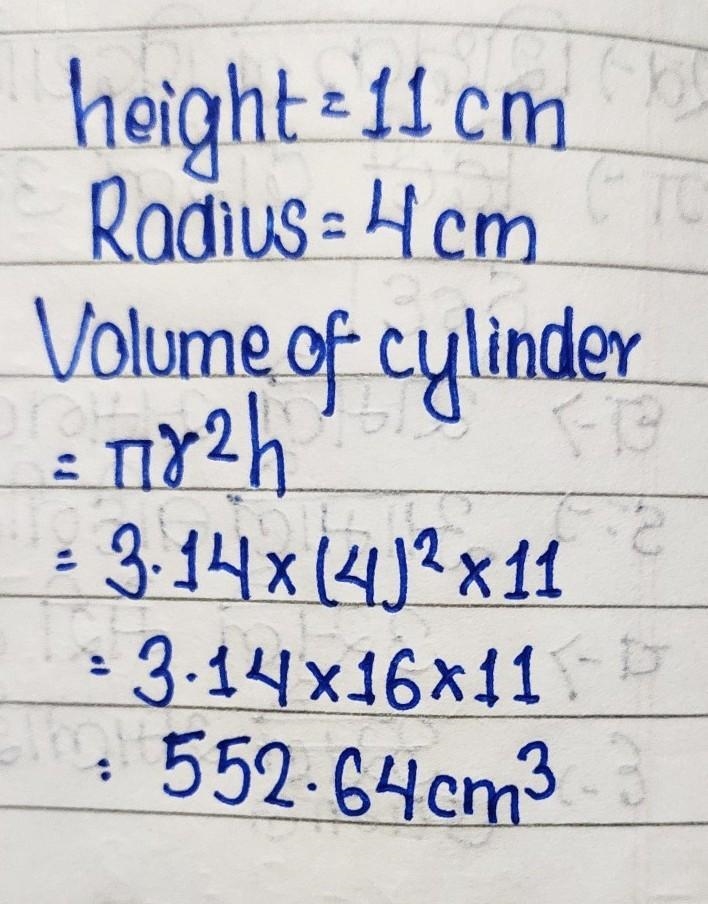 height = 11 cm
Radius = 4 cm
Volume of cylinder
= πr²h
= 3.14 x (4)² x 11
= 3.14 x 16 x 11
= 552.64 cm³